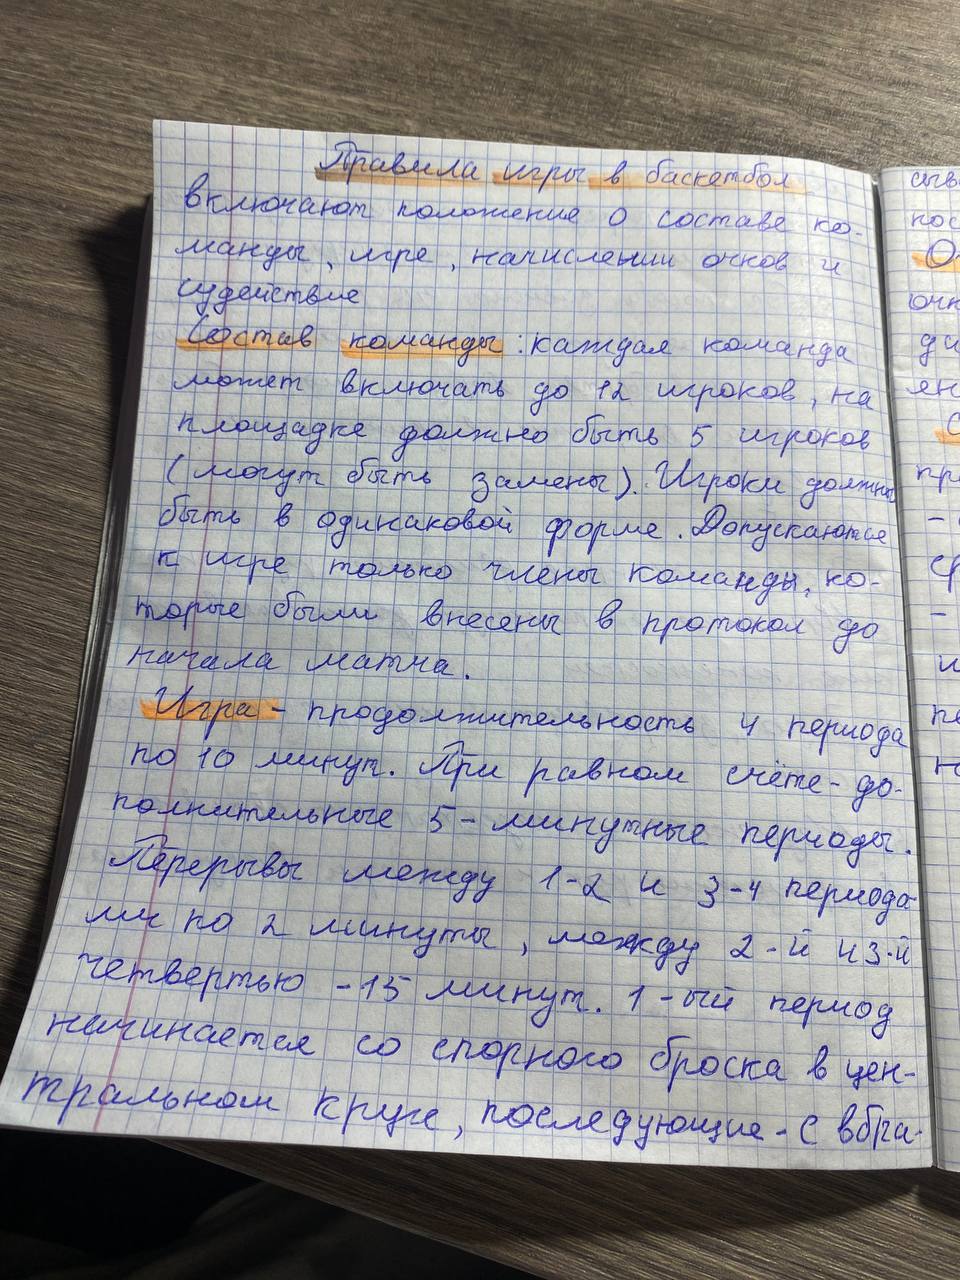 Правила игры в баскетбол
включают положение о составе ко-
манды, игре, начислении очков и
судействе
Состав команды: каждая команда
может включать до 12 игроков, на
площадке должно быть 5 игроков
(могут быть замены). Игроки должны
быть в одинаковой форме. Допускаются
к игре только члены команды, ко-
торые были внесены в протокол до
начала матча.
Игра - продолжительность 4 периода
по 10 минут. При равном счёте - до-
полнительные 5-минутные периоды.
Перерывы между 1-2 и 3-4 периода-
ми по 2 минуты, между 2-й и 3-й
четвертью - 15 минут. 1-ый период
начинается со спорного броска в цен-
тральном круге, последующие - с вбра-